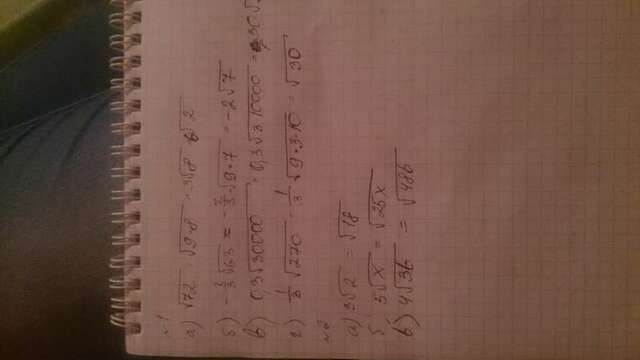 №1
а) √72 = √9·8 = 3√8 = 6√2
б) -2/3√63 = -2/3√9·7 = -2√7
в) 0,3√30000 = 0,3√3·10000 = 30√3
г) 1/3√270 = 1/3√9·3·10 = √30
№2
а) 3√2 = √18
б 5√x = √25x
в) 4√3b = √48b